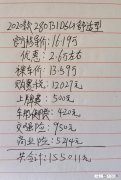 2020款280BIDSG舒适型
官方指导价:16.19万
优惠:2.6万左右
裸车价:13.59万
购置税:12027元
上牌费:500元
车船使用税:420元
交强险:950元
商业险:5214元
共合计:155011元